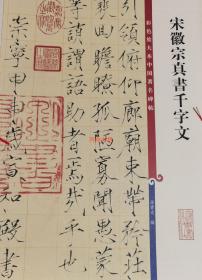 宋徽宗真書千字文
彩色放大本中国著名碑帖
孫寶文 編
引領俯仰廊廟束帶矜莊
瞻眺孤陋寡聞愚蒙
等誚謂語助者焉哉乎也
崇寧甲申歲宣和殿書